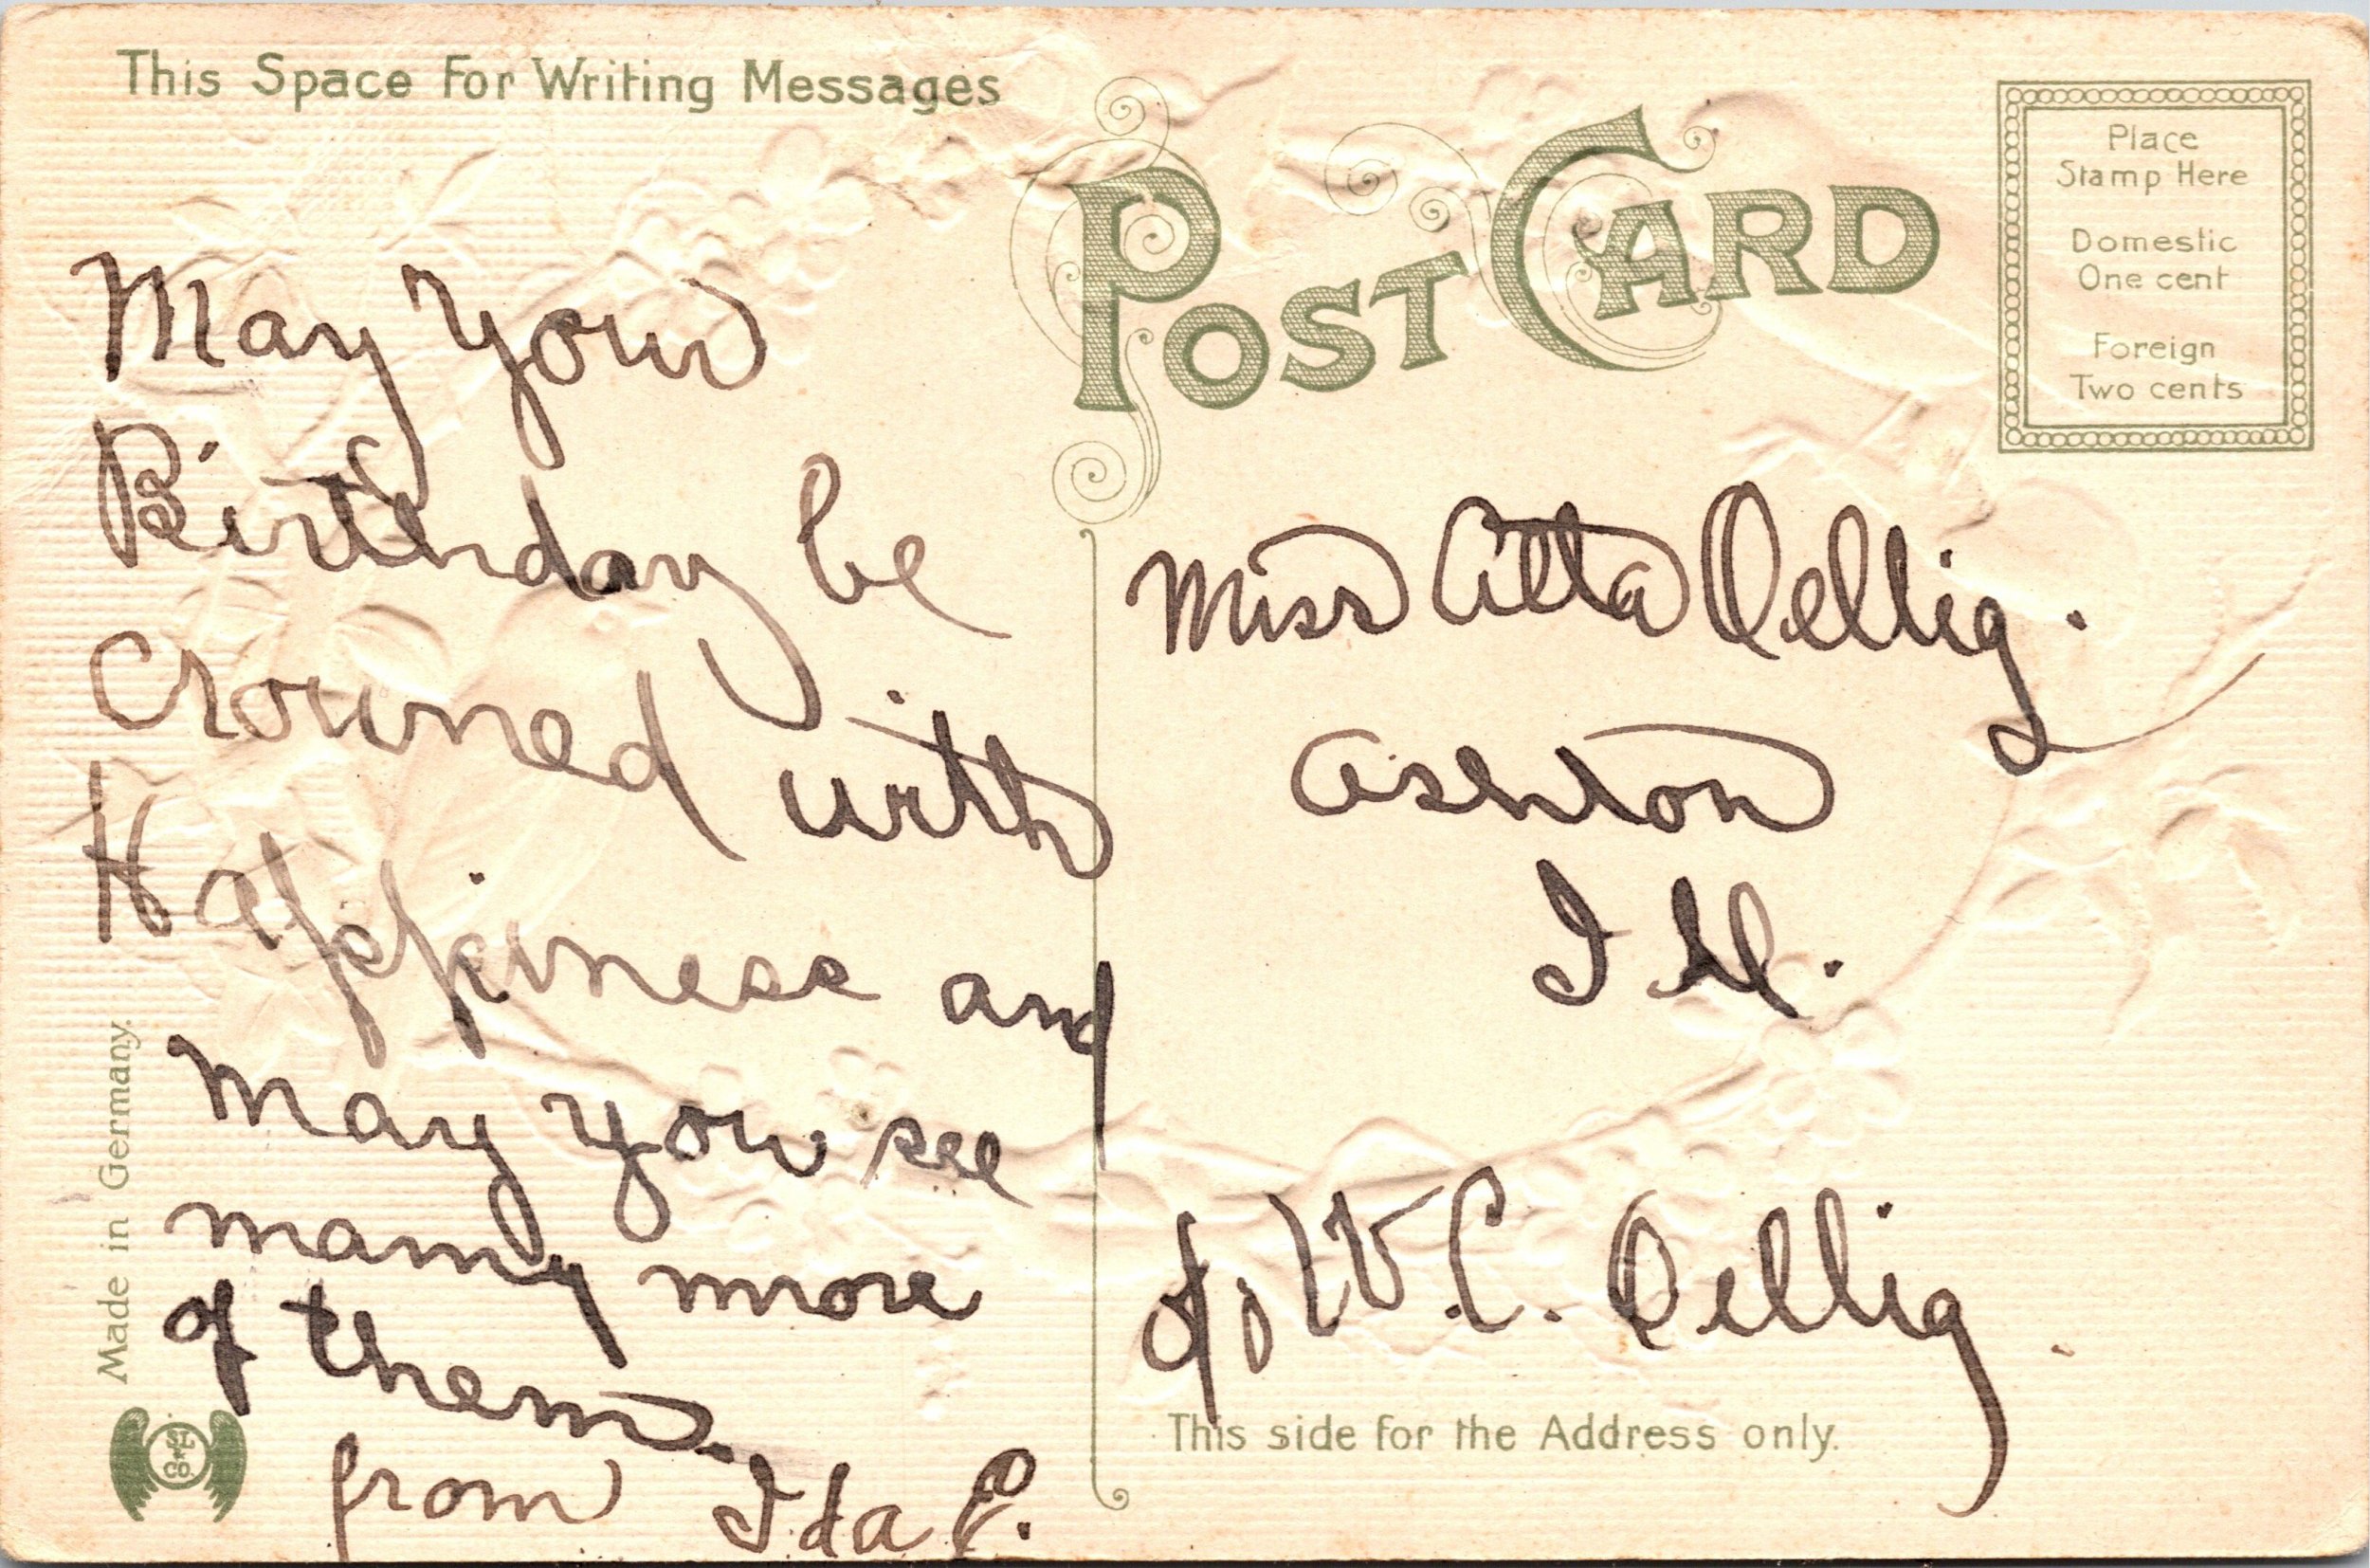 This Space For Writing Messages
POST CARD
Place
Stamp Here
Domestic
One cent
Foreign
Two cents
May your
Birthday be
Crowned with
Happiness and
may you see
many more
of them.
from Ida E.
Made in Germany.
Miss Alta Oellig.
Ashton
Ill.
c/o W.C. Oellig.
This side for the Address only.